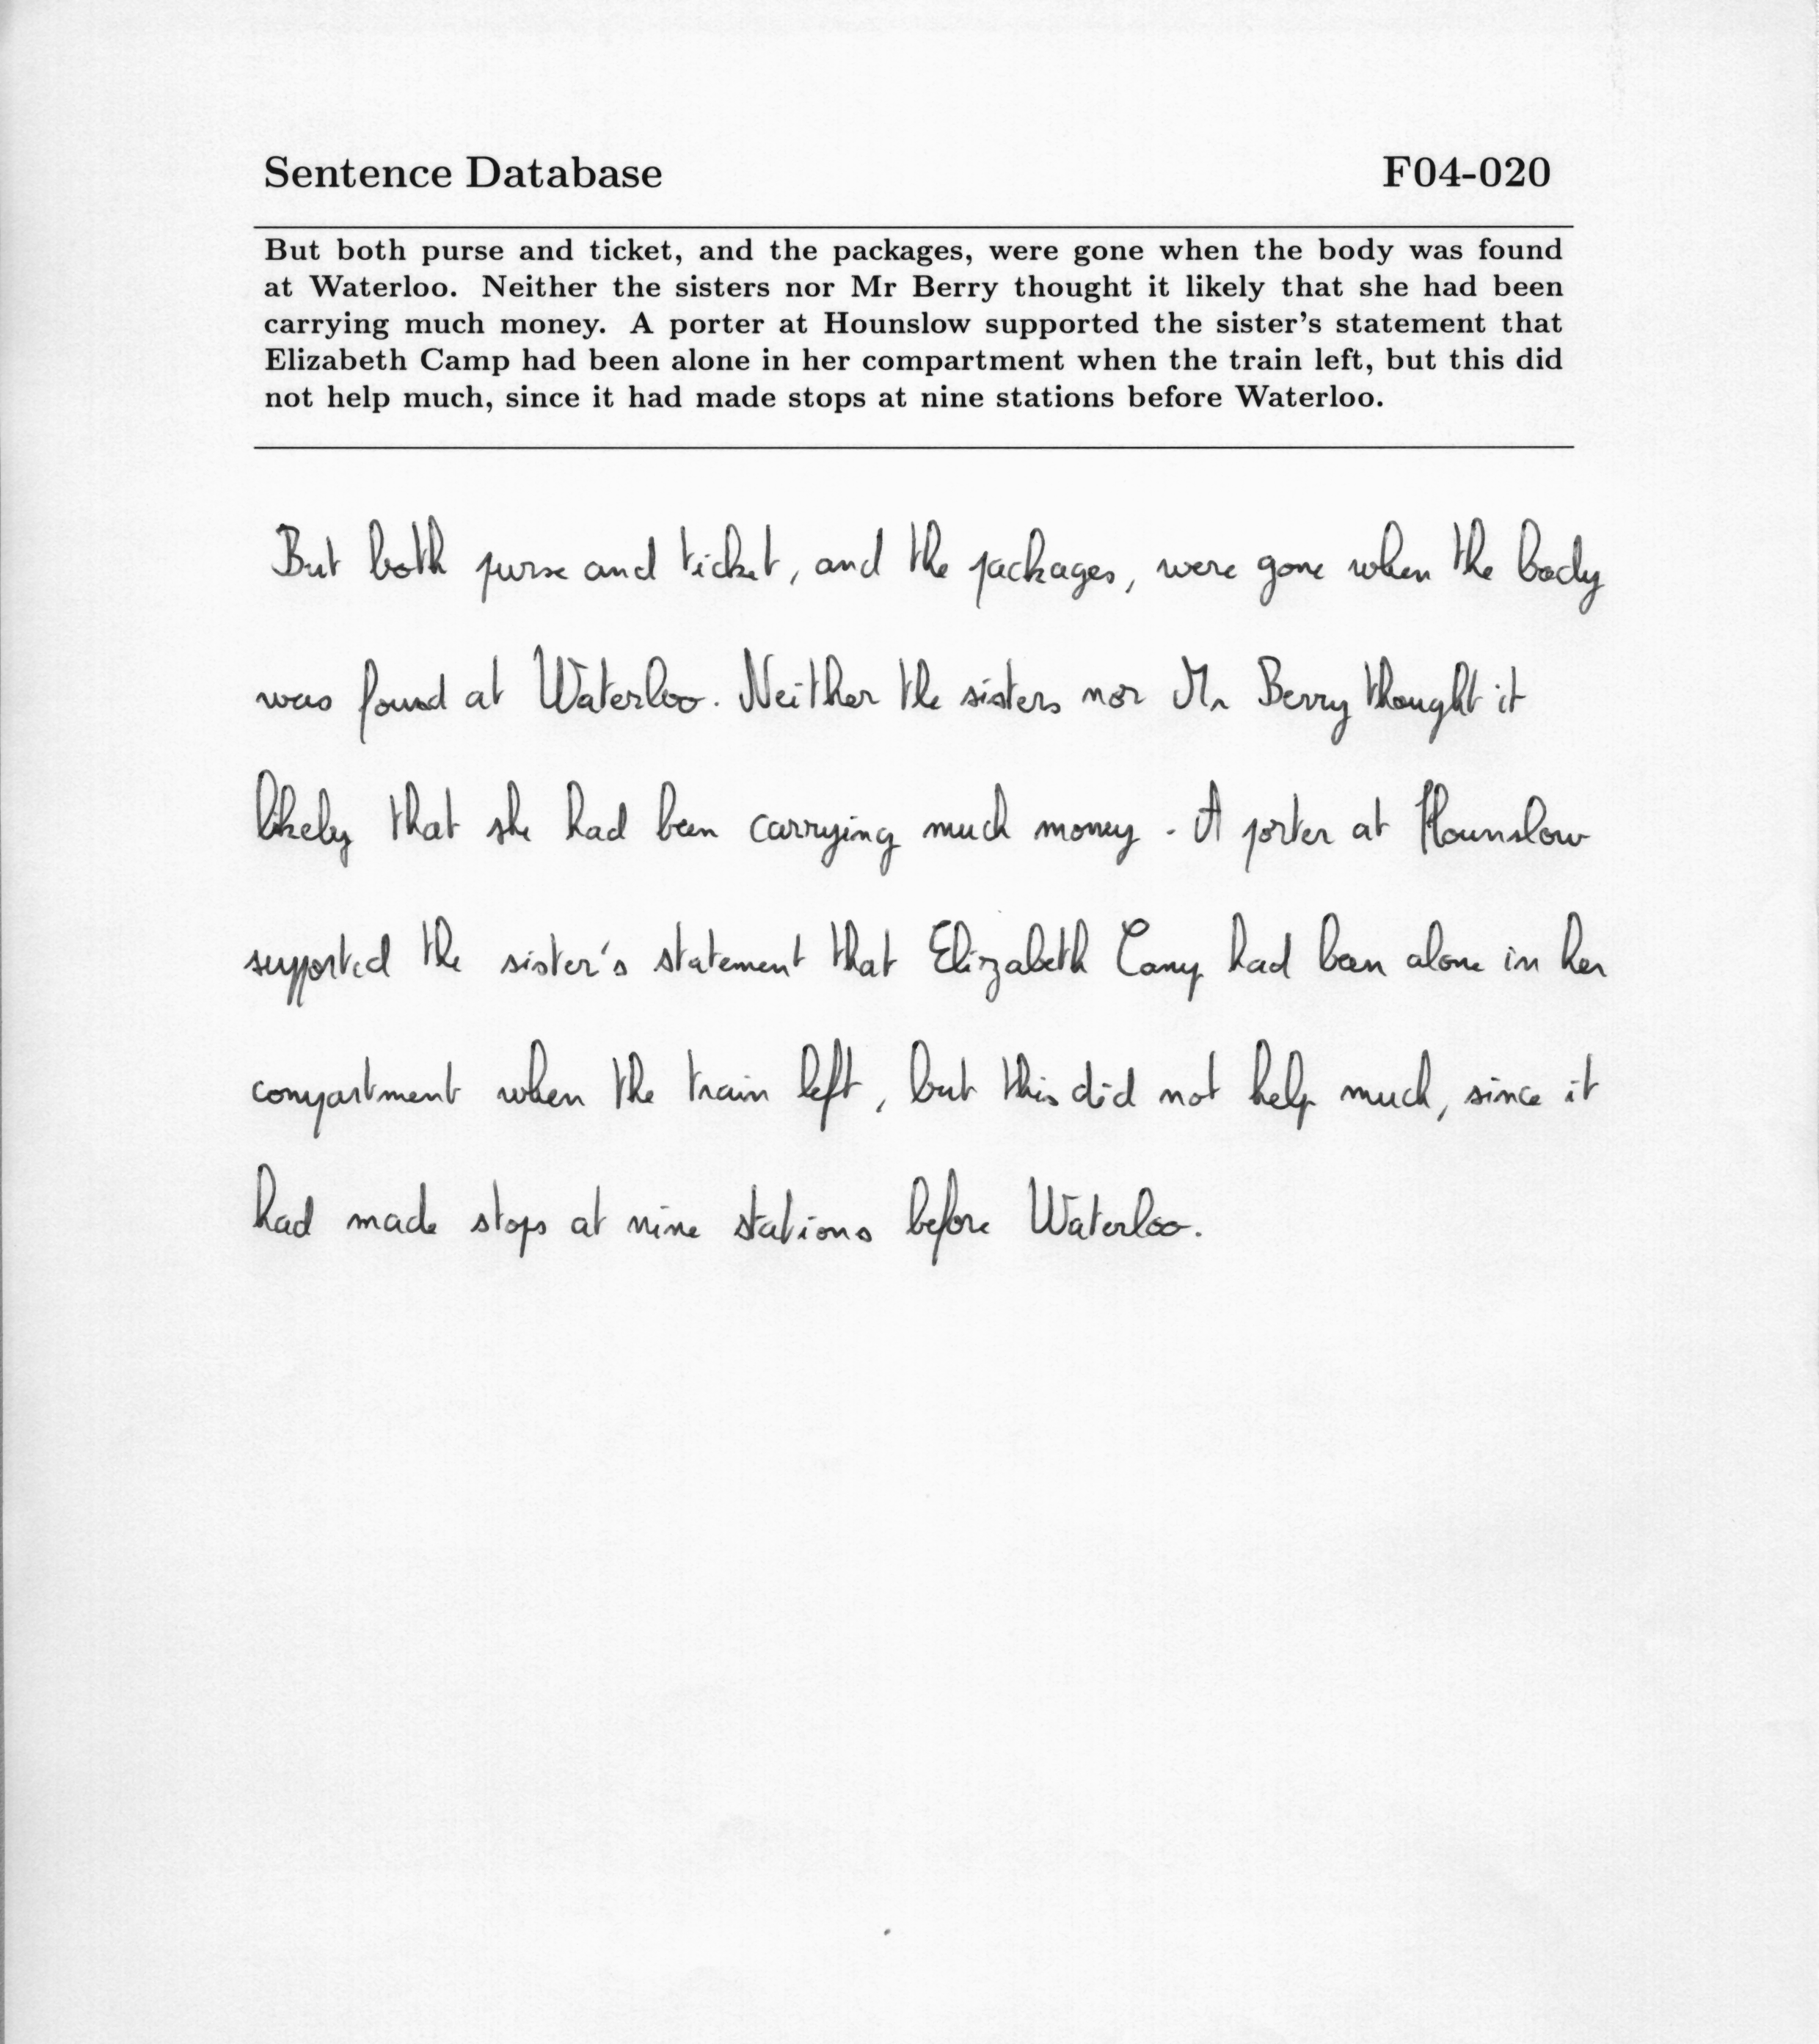 Sentence Database F04-020
But both purse and ticket, and the packages, were gone when the body was found
at Waterloo. Neither the sisters nor Mr Berry thought it likely that she had been
carrying much money. A porter at Hounslow supported the sister's statement that
Elizabeth Camp had been alone in her compartment when the train left, but this did
not help much, since it had made stops at nine stations before Waterloo.
But both purse and ticket, and the packages, were gone when the body
was found at Waterloo. Neither the sisters nor Mr Berry thought it
likely that she had been carrying much money. A porter at Hounslow
supported the sister's statement that Elizabeth Camp had been alone in her
compartment when the train left, but this did not help much, since it
had made stops at nine stations before Waterloo.